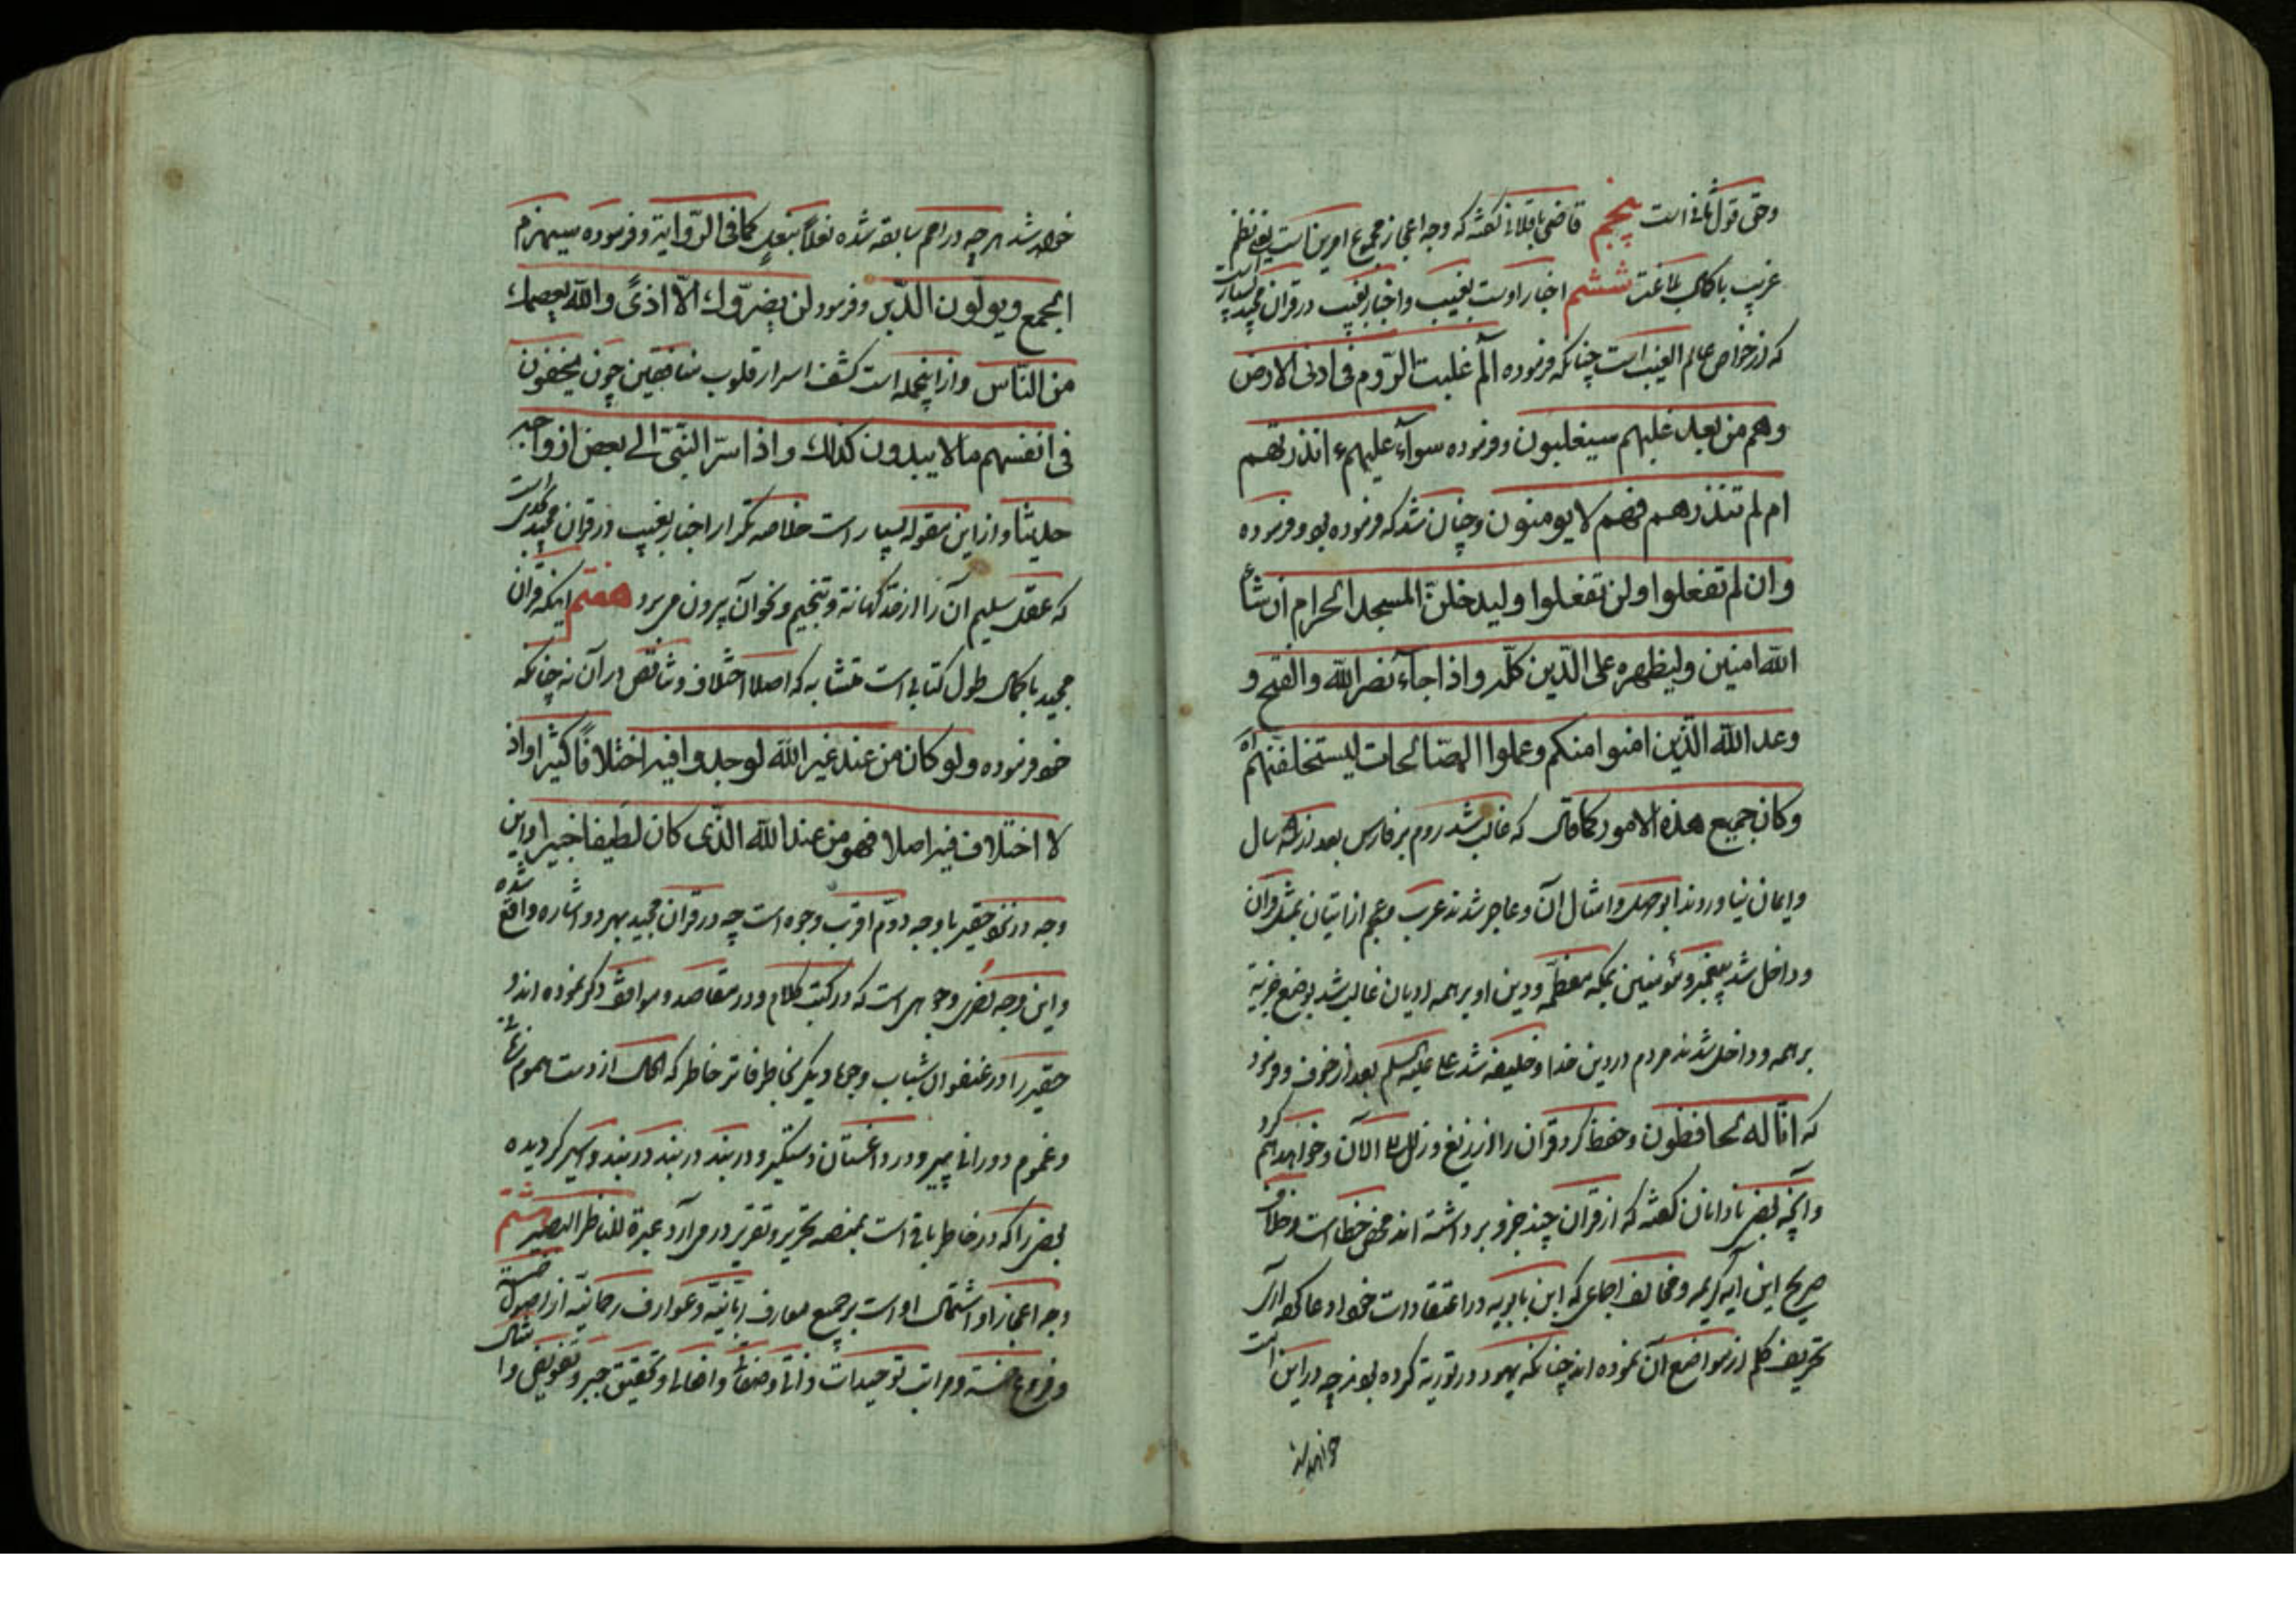 وحق قول ثانی است پنجم قاضی باقلانی گفته که وجه اعجاز مجموع امرین است یعنی نظم
غریب با کمال بلاغت ششم اخبار اوست بغیب و اخبار بغیب در قران مجید بسیار است
که از خواص عالم الغیب است چنانکه فرموده الم غلبت الرّوم فی ادنی الارض
وهم من بعد غلبهم سیغلبون و فرموده سوآء علیهم ءانذرتهم
ام لم تنذرهم فهم لا یومنون و چنان شد که فرموده بود و فرموده
وان لم تفعلوا ولن تفعلوا ولیدخلنّ المسجد الحرام ان شاء
الله امنین ولیظهره علی الدّین کلّه واذا جآء نصر الله والفتح و
وعد الله الذّین امنوا منکم وعملوا الصّالحات لیستخلفنهم اه
وکان جمیع هذه الامور کما قال که غالب شد روم بر فارس بعد از سال
وایمان نیاوردند ابوجهل و امثال آن و عاجز شدند عرب و عجم از اتیان بمثل قران
و داخل شد پیغمبر و مؤمنین بمکه معظّمه و دین او بر همه ادیان غالب شد بوضع جزیة
بر همه و داخل شدند مردم در دین خدا و خلیفه شد علی علیه السلم بعد از و فرمود
که انّا له لحافظون و حفظ کرد قران را از زیغ و زلل الی الآن و خواهد هم کرد
و آنچه بعضی نادانان گفته که از قران چند جزو برداشته اند محض خطاست و خلاف
صریح این ایه کریمه و مخالف اجماعی که ابن بابویه در اعتقادات خود ادعا کرده اری
تحریف کلم از مواضع آن نموده اند چنانکه یهود در توریة کرده بودند چه در این امت
خواهد شد
خواهد شد هر چه در امم سابقه شده نعلاً بنعلٍ کما فی الرّوایة و فرموده سیهزم
الجمع ویولّون الدّبر و فرمود لن یضرّوک الّا اذیً والله یعصمک
من النّاس و از اینجمله است کشف اسرار قلوب منافقین چون یخفون
فی انفسهم ما لا یبدون لک واذ اسرّ النّبی الی بعض ازواجه
حدیثا و از این مقوله بسیار است خلاصه تکرار اخبار بغیب در قران مجید بحدی است
که عقل سلیم آن را از حد کهانة و تنجیم و نحو آن بیرون می برد هفتم اینکه قران
مجید با کمال طول کتابی است متشابه که اصلا اختلاف و تناقض در آن نه چنانکه
خود فرموده ولو کان من عند غیر الله لوجدوا فیه اختلافًا کثیرا واذ
لا اختلاف فیه اصلا فهو من عند الله الذّی کان لطیفا خبیرا و این
وجه در نزد حقیر با وجه دوّم اقرب وجوه است چه در قران مجید بهر دو اشاره واقع شده
و این وجه بعضی وجوهی است که در کتب کلام و در مقاصد و مواقف ذکر نموده اند و
حقیر را در عنفوان شباب وجوه دیگر بخاطر فاتر خاطر که الحال از دست هموم زمان
و غموم دوران پیر و در داغستان دستگیر و در بند دربند دربند و اسیر گردیده
بعضی را که در خاطر باقی است بمنصه تحریر و تقریر در می آرد عبرة للناظر البصیر هشتم
وجه اعجاز او اشتمال او است بر جمیع معارف ربّانیّه و عوارف رحمانیّه از اصول خمسة
و فروع خمسة و مراتب توحیدات ذاتا و صفاتا و افعالا و تحقیق جبر و تفویض و امثال